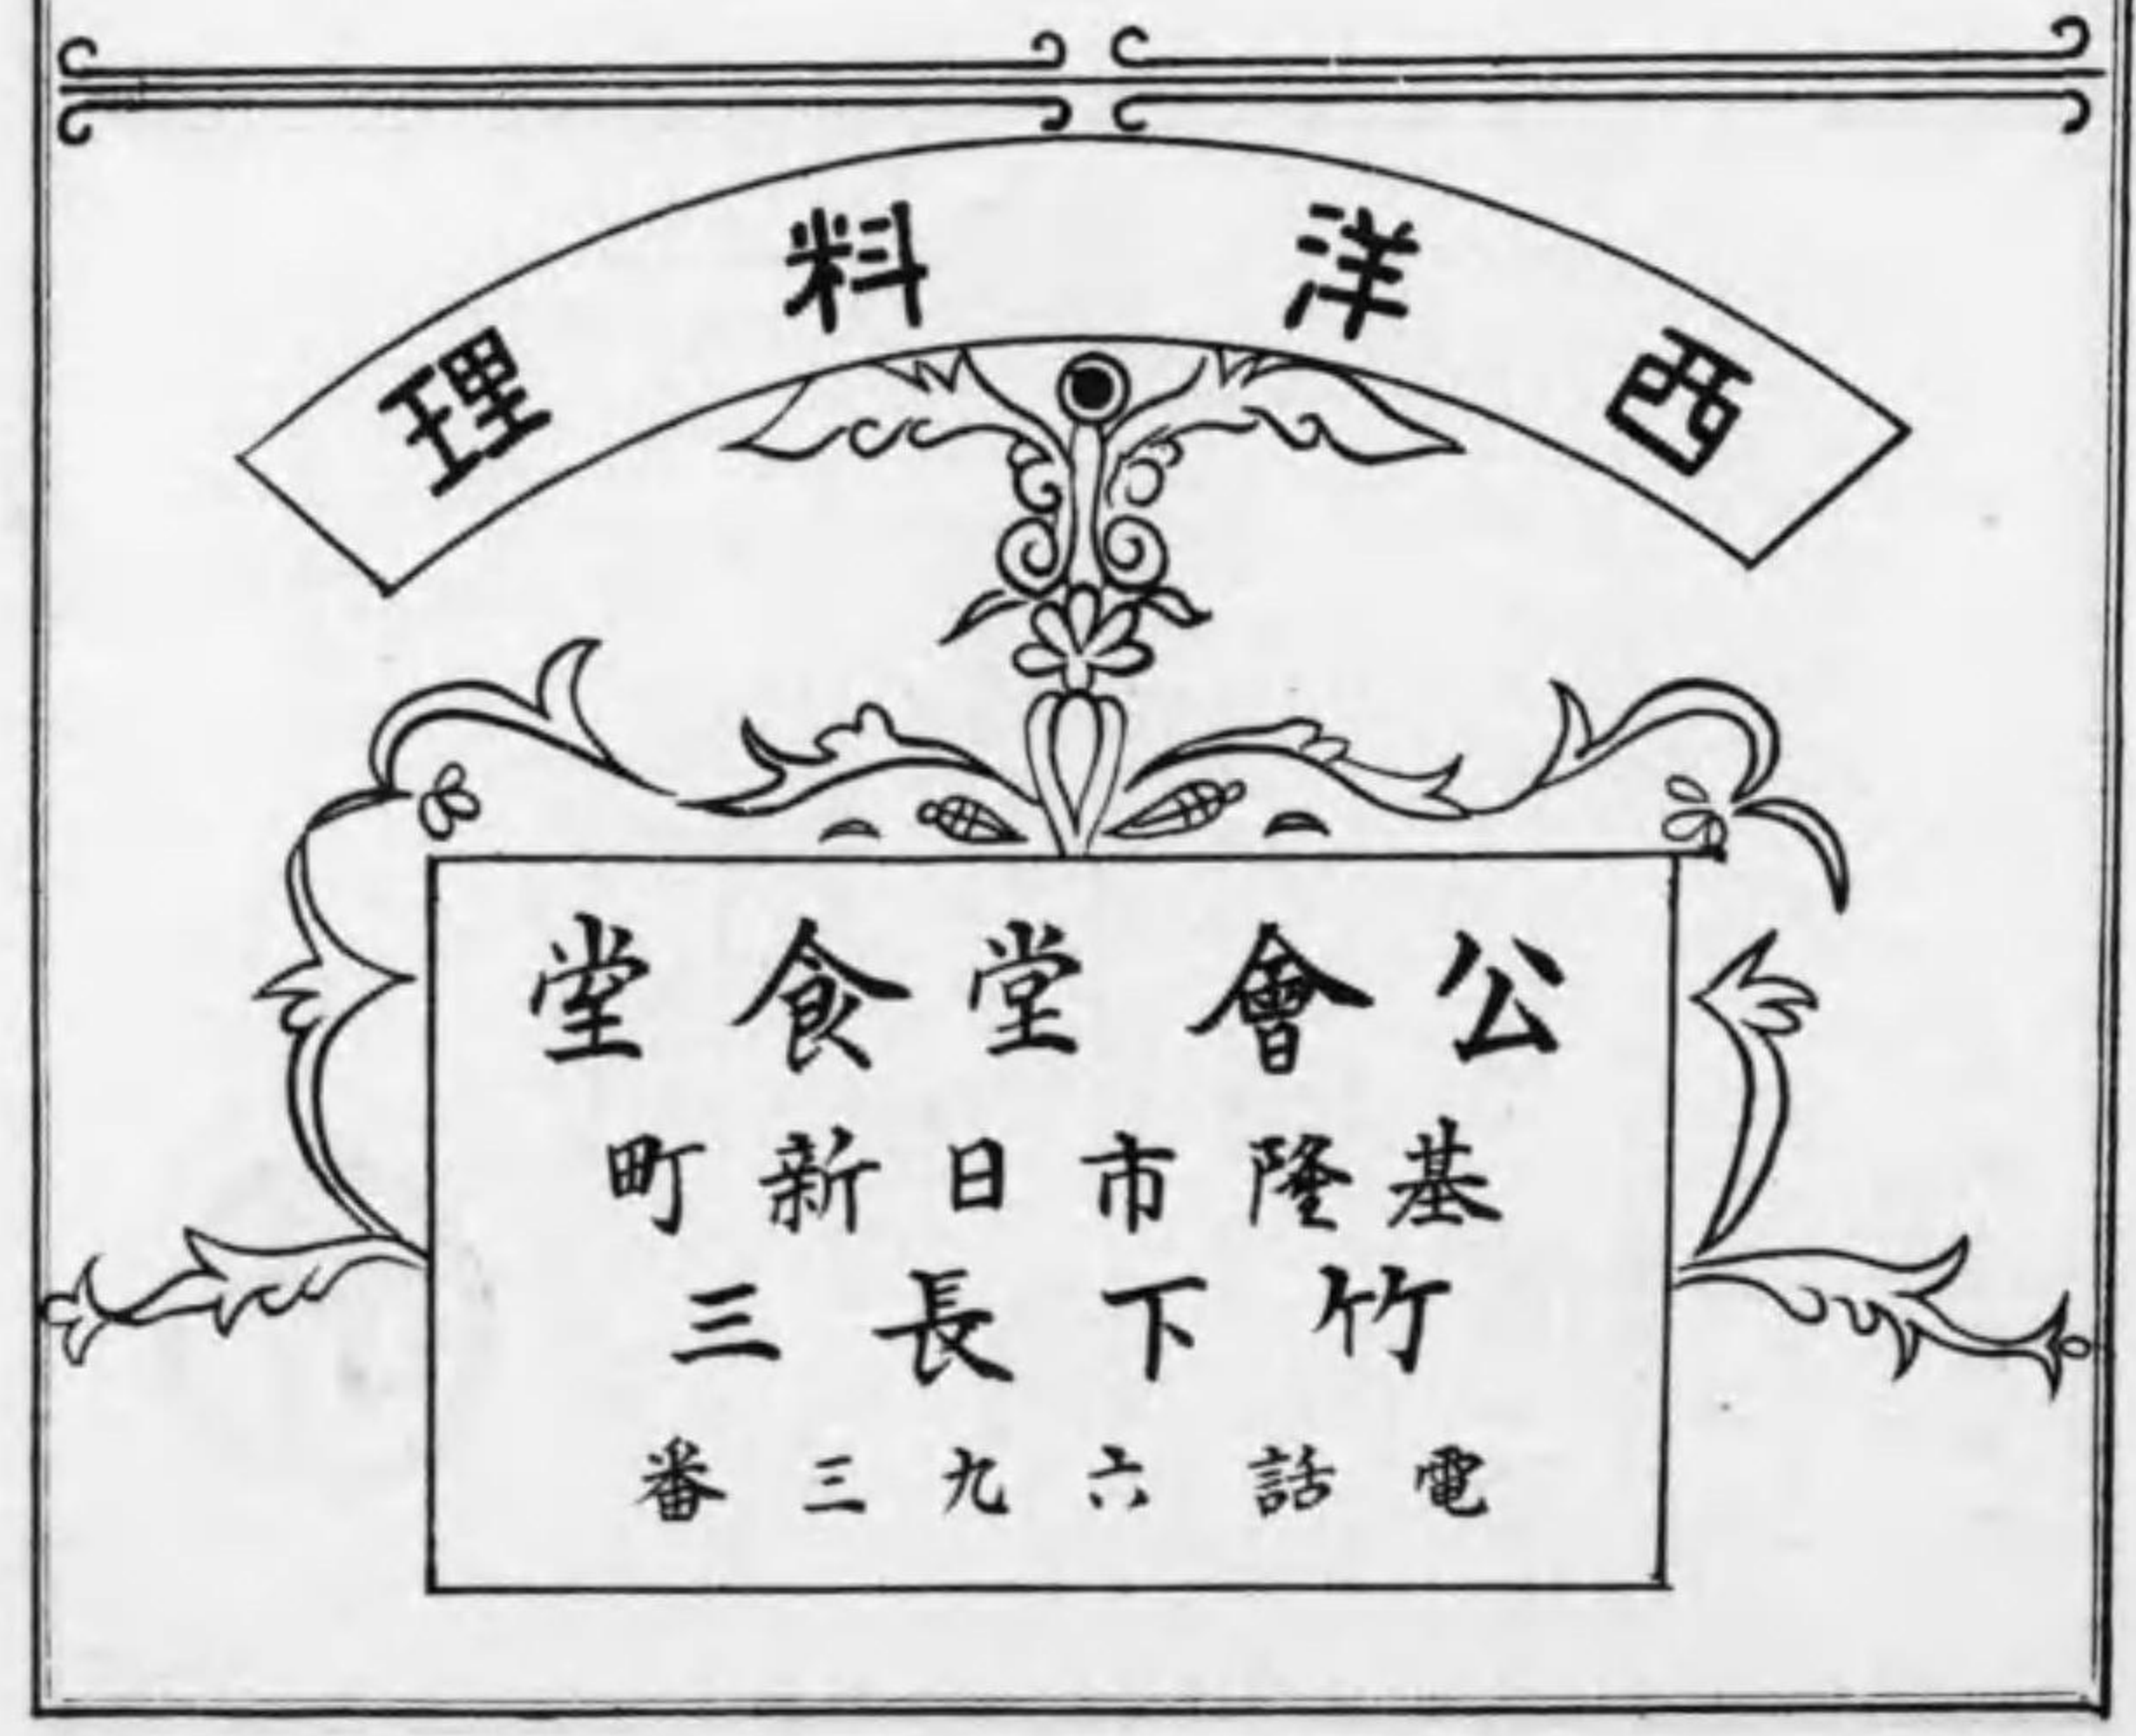 西洋料理
公會堂食堂
基隆市日新町
竹下長三
電話六九三番